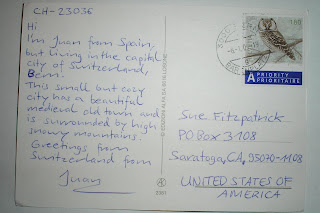 CH-23036
Hi
I'm Juan from Spain,
but living in the capital
city of Switzerland,
Bern.
This small but cozy
city has a beautiful
medieval old town and
is surrounded by high
snowy mountains.
Greetings from
Switzerland from
Juan
A PRIORITY
PRIORITAIRE
Sue Fitzpatrick
PO Box 3108
Saratoga, CA, 95070-1108
UNITED STATES OF
AMERICA